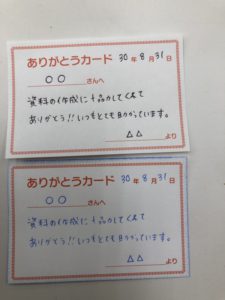 ありがとうカード 30年8月31日
○○さんへ
資料の作成に協力してくれて
ありがとう!!いつもとても助かっています。
△△より
ありがとうカード 30年8月31日
○○さんへ
資料の作成に協力してくれて
ありがとう!!いつもとても助かっています。
△△より